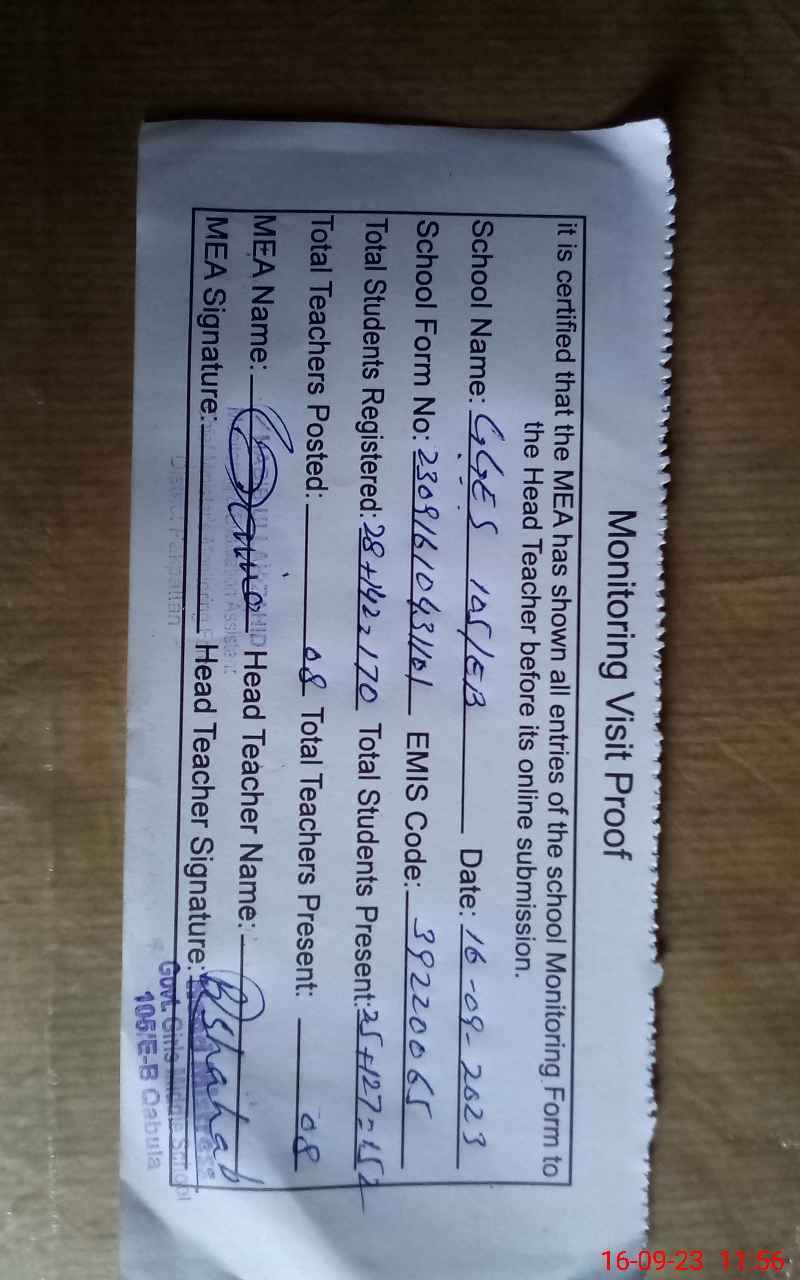 Monitoring Visit Proof
it is certified that the MEA has shown all entries of the school Monitoring Form to
the Head Teacher before its online submission.
School Name: GGES 105/EB Date: 16-09-2023
School Form No: EMIS Code: 39220065
Total Students Registered: 28+142=170 Total Students Present: 25+127=152
Total Teachers Posted: 08 Total Teachers Present: 08
MEA Name: Head Teacher Name:
MEA Signature: Head Teacher Signature:
District Pakpattan
Govt. Girls Middle School
105/E-B Qabula
16-09-23 11:56